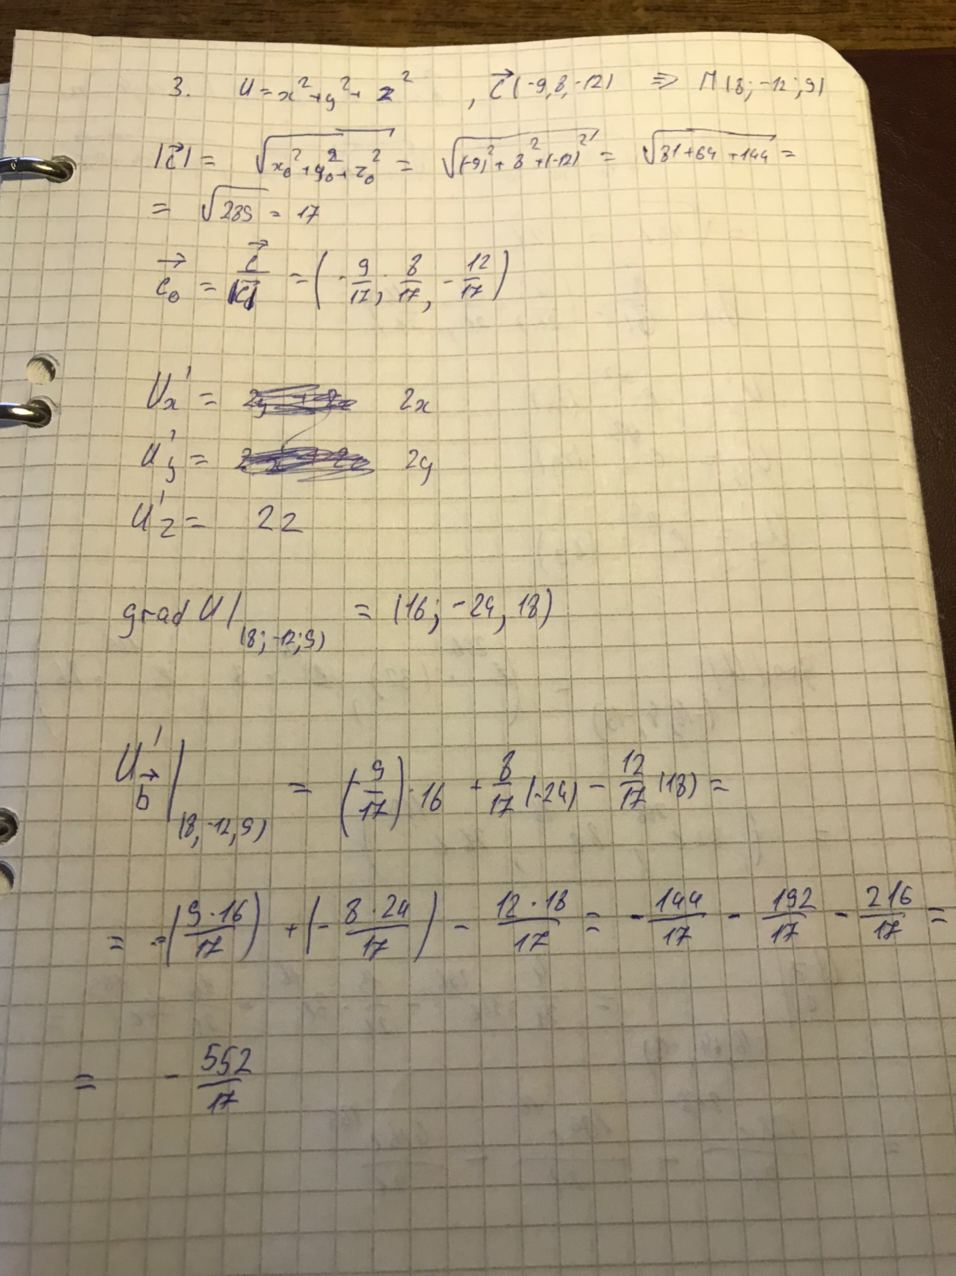 3. U = x² + y² + z² , c⃗(-9, 8, -12) ⇒ M(8; -12; 9)
|c⃗| = √(x₀² + y₀² + z₀²) = √((-9)² + 8² + (-12)²) = √(81 + 64 + 144) =
= √289 = 17
c⃗₀ = c⃗/|c⃗| = (-9/17; 8/17, -12/17)
U'x = 2x
U'y = 2y
U'z = 2z
grad U|(8; -12; 9) = (16; -24, 18)
U'b⃗|(8, -12, 9) = (-9/17)·16 + 8/17 (-24) - 12/17 (18) =
= -(9·16/17) + (-8·24/17) - 12·18/17 = -144/17 - 192/17 - 216/17 =
= -552/17